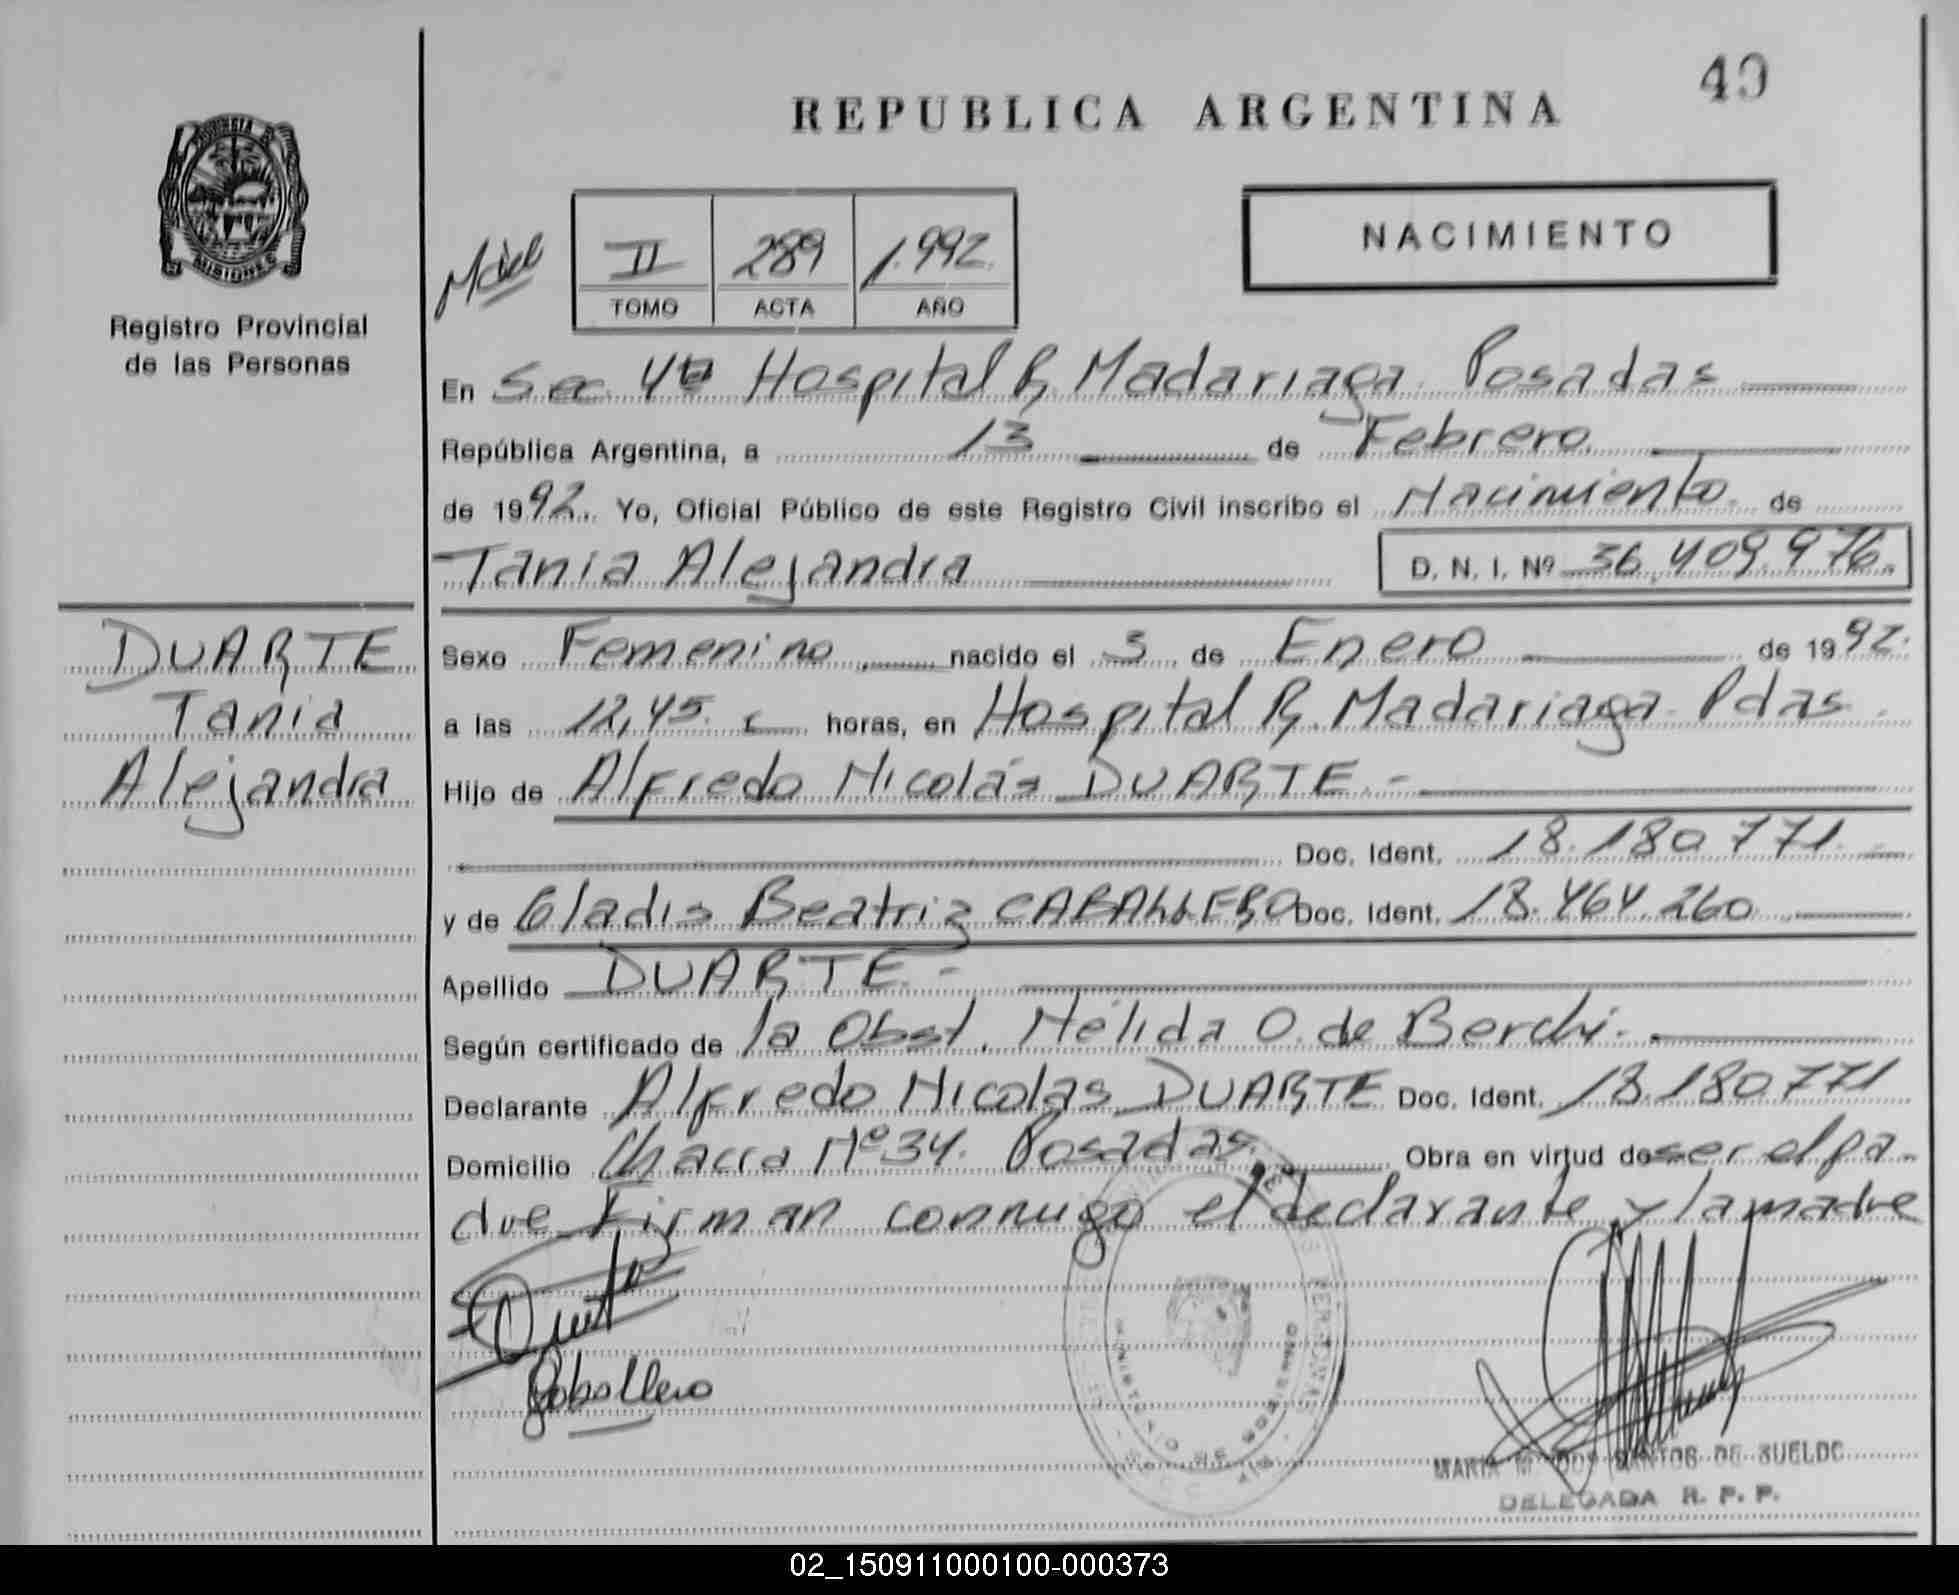 40
REPUBLICA ARGENTINA
MISIONES
Registro Provincial
de las Personas
II 289 1.992.
TOMO ACTA AÑO
NACIMIENTO
En Sec. 4ta Hospital R. Madariaga Posadas
República Argentina, a 13 de Febrero.
de 1992. Yo, Oficial Público de este Registro Civil inscribo el Nacimiento de
Tania Alejandra D. N. I. Nº 36.409.976.
DUARTE
Tania
Alejandra
Sexo Femenino nacido el 3 de Enero de 1992.
a las 12,45. horas, en Hospital R. Madariaga Pdas.
Hijo de Alfredo Nicolás DUARTE.-
Doc. Ident. 18.180.771.
y de Gladis Beatriz CABALLERO Doc. Ident. 18.464.260
Apellido DUARTE.-
Según certificado de la Obst. Nélida O. de Berchi.
Declarante Alfredo Nicolas DUARTE Doc. Ident. 18.180.771
Domicilio Chacra Nº 34. Posadas. Obra en virtud de ser el pa-
dre Firman conmigo el declarante y la madre
Caballero
MARIA M. DOS SANTOS DE SUELDO
DELEGADA R. P. P.
02_150911000100-000373